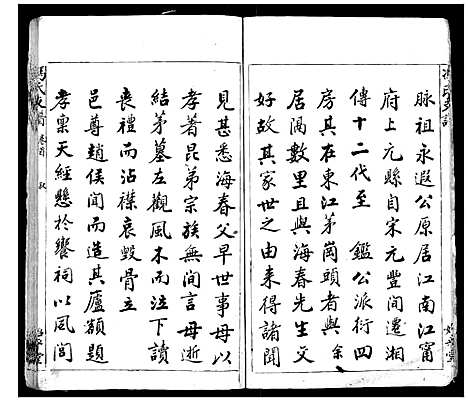 脉祖永遐公原居江南江甯
府上元縣自宋元豐間遷湘
傳十二代至鑑公派衍四
房其在東江茅崗頭者與余
居隔數里且與海春先生文
好故其家世之由来得諸聞
見甚悉海春父早世事母以
孝著昆弟宗族無間言母逝
結茅墓左觀風木而泣下讀
喪禮而沾襟哀毀骨立
邑尊趙侯聞而造其廬額題
孝稟天經懸於饗祠以風閭